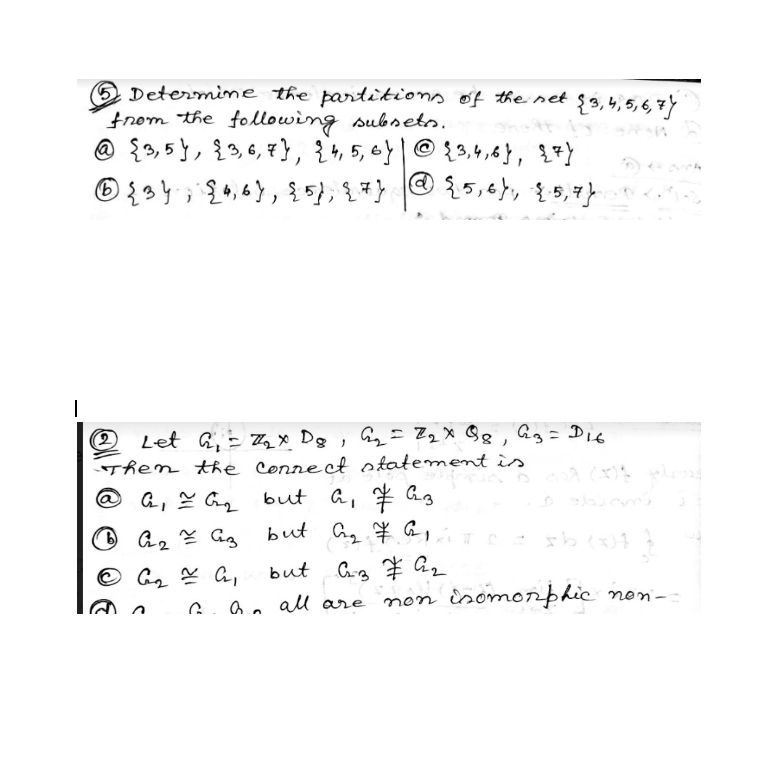 ⑤ Determine the partitions of the set {3,4,5,6,7}
from the following subsets.
ⓐ {3,5}, {3,6,7}, {4,5,6} | ⓒ {3,4,6}, {7}
ⓑ {3}, {4,6}, {5}, {7} | ⓓ {5,6}, {5,7}
② Let G₁ = Z₂ × D₈, G₂ = Z₂ × Q₈, G₃ = D₁₆
Then the correct statement is
ⓐ G₁ ≅ G₂ but G₁ ≇ G₃
ⓑ G₂ ≅ G₃ but G₂ ≇ G₁
ⓒ G₂ ≅ G₁ but G₃ ≇ G₂
all are non isomorphic non-